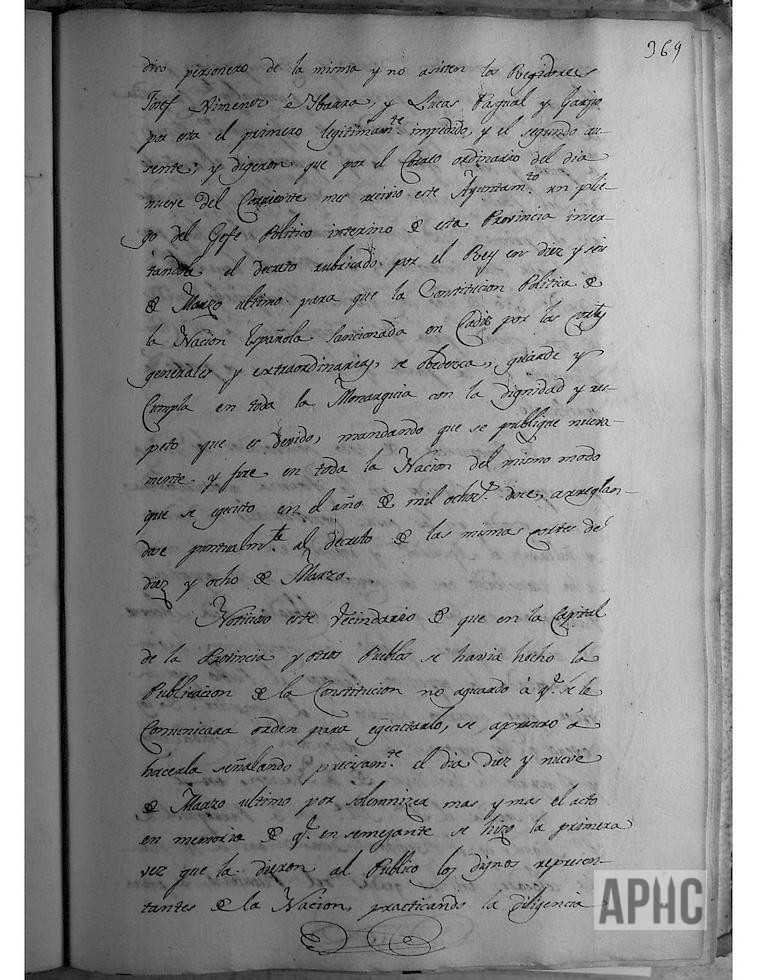 369
dico personero de la misma y no asisten los Regidores
Josef Ximenez é Ybarra, y Lucas Pasqual y Garijo
por estar el primero legitimam.te impedido, y el segundo au-
sente; y digeron que por el Correo ordinario del dia
nueve del Corriente mes recivio este Ayuntam.to un plie-
go del Gefe Politico interino de esta Provincia inser-
tandole el decreto rubricado por el Rey en diez y seis
de Marzo ultimo para que la Constitucion Politica de
la Nacion Española sancionada en Cadiz por las Cortes
generales y extraordinarias, se obedezca, guarde y
Cumpla en toda la Monarquia con la dignidad y res-
peto que es devido, mandando que se publique nueva-
mente y jure en toda la Nacion del mismo modo
que se egecuto en el año de mil ochoc.s doce, arreglan-
dose puntualm.te al decreto de las mismas cortes de
diez y ocho de Marzo.
Noticioso este Vecindario de que en la Capital
de la Provincia y otros Pueblos se havia hecho la
Publicacion de la Constitucion no aguardo á q.e se le
Comunicara orden para egecutarlo, se apresuró á
hacerla señalando precisam.te el dia diez y nueve
de Marzo ultimo por solemnizar mas y mas el acto
en memoria de q.e en semejante se hizo la primera
vez que la dieron al Publico los dignos represen-
tantes de la Nacion, practicando la diligencia
APHC